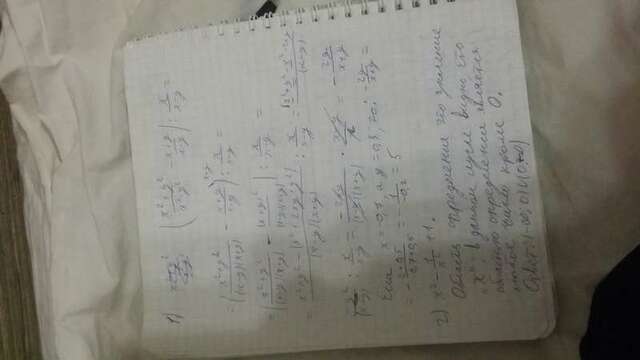 1) (x²+y²/x²-y² - x+y/x-y) : x/x-y =
= (x²+y²/(x-y)(x+y) - x+y/x-y)^x+y : x/x-y =
= (x²+y²/(x-y)(x+y) - (x+y)²/(x-y)(x+y)) : x/x-y =
= x²+y²-(x²+2xy+y²)/(x-y)(x+y) : x/x-y = x²+y²-x²-2xy-y²/(x-y)
: x/x-y = -2xy/(x-y)(x+y) · x-y/x = -2y/x+y
Если x = -0,7, а y = 0,5, то: -2y/x+y =
= -2·0,5/-0,7+0,5 = -1/-0,2 = 5
2) x² - 1/x² + 1.
Область определения это значение
"x", в данном случае видно, что
определения является
любое число кроме 0.
Ответ: (-∞; 0)∪(0;∞)